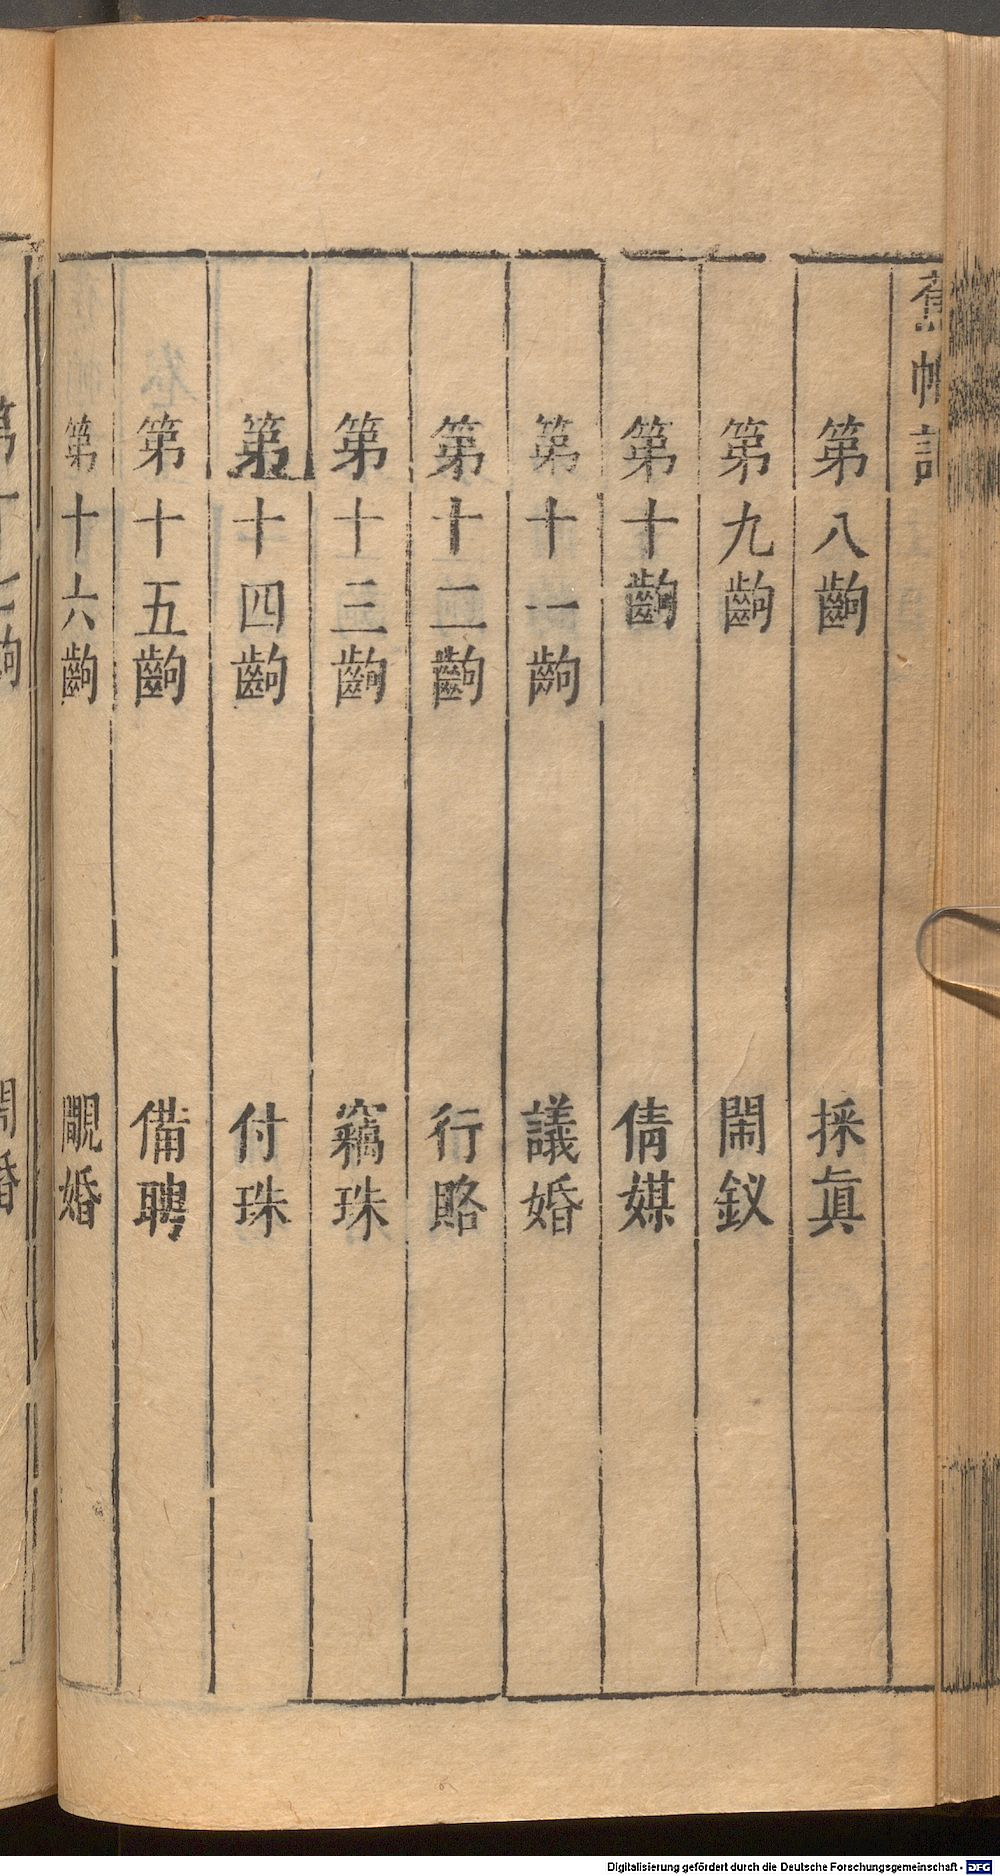 蕉帕記
第八齣 採眞
第九齣 閙釵
第十齣 倩媒
第十一齣 議婚
第十二齣 行賂
第十三齣 竊珠
第十四齣 付珠
第十五齣 備聘
第十六齣 覸婚
Digitalisierung gefördert durch die Deutsche Forschungsgemeinschaft - DFG